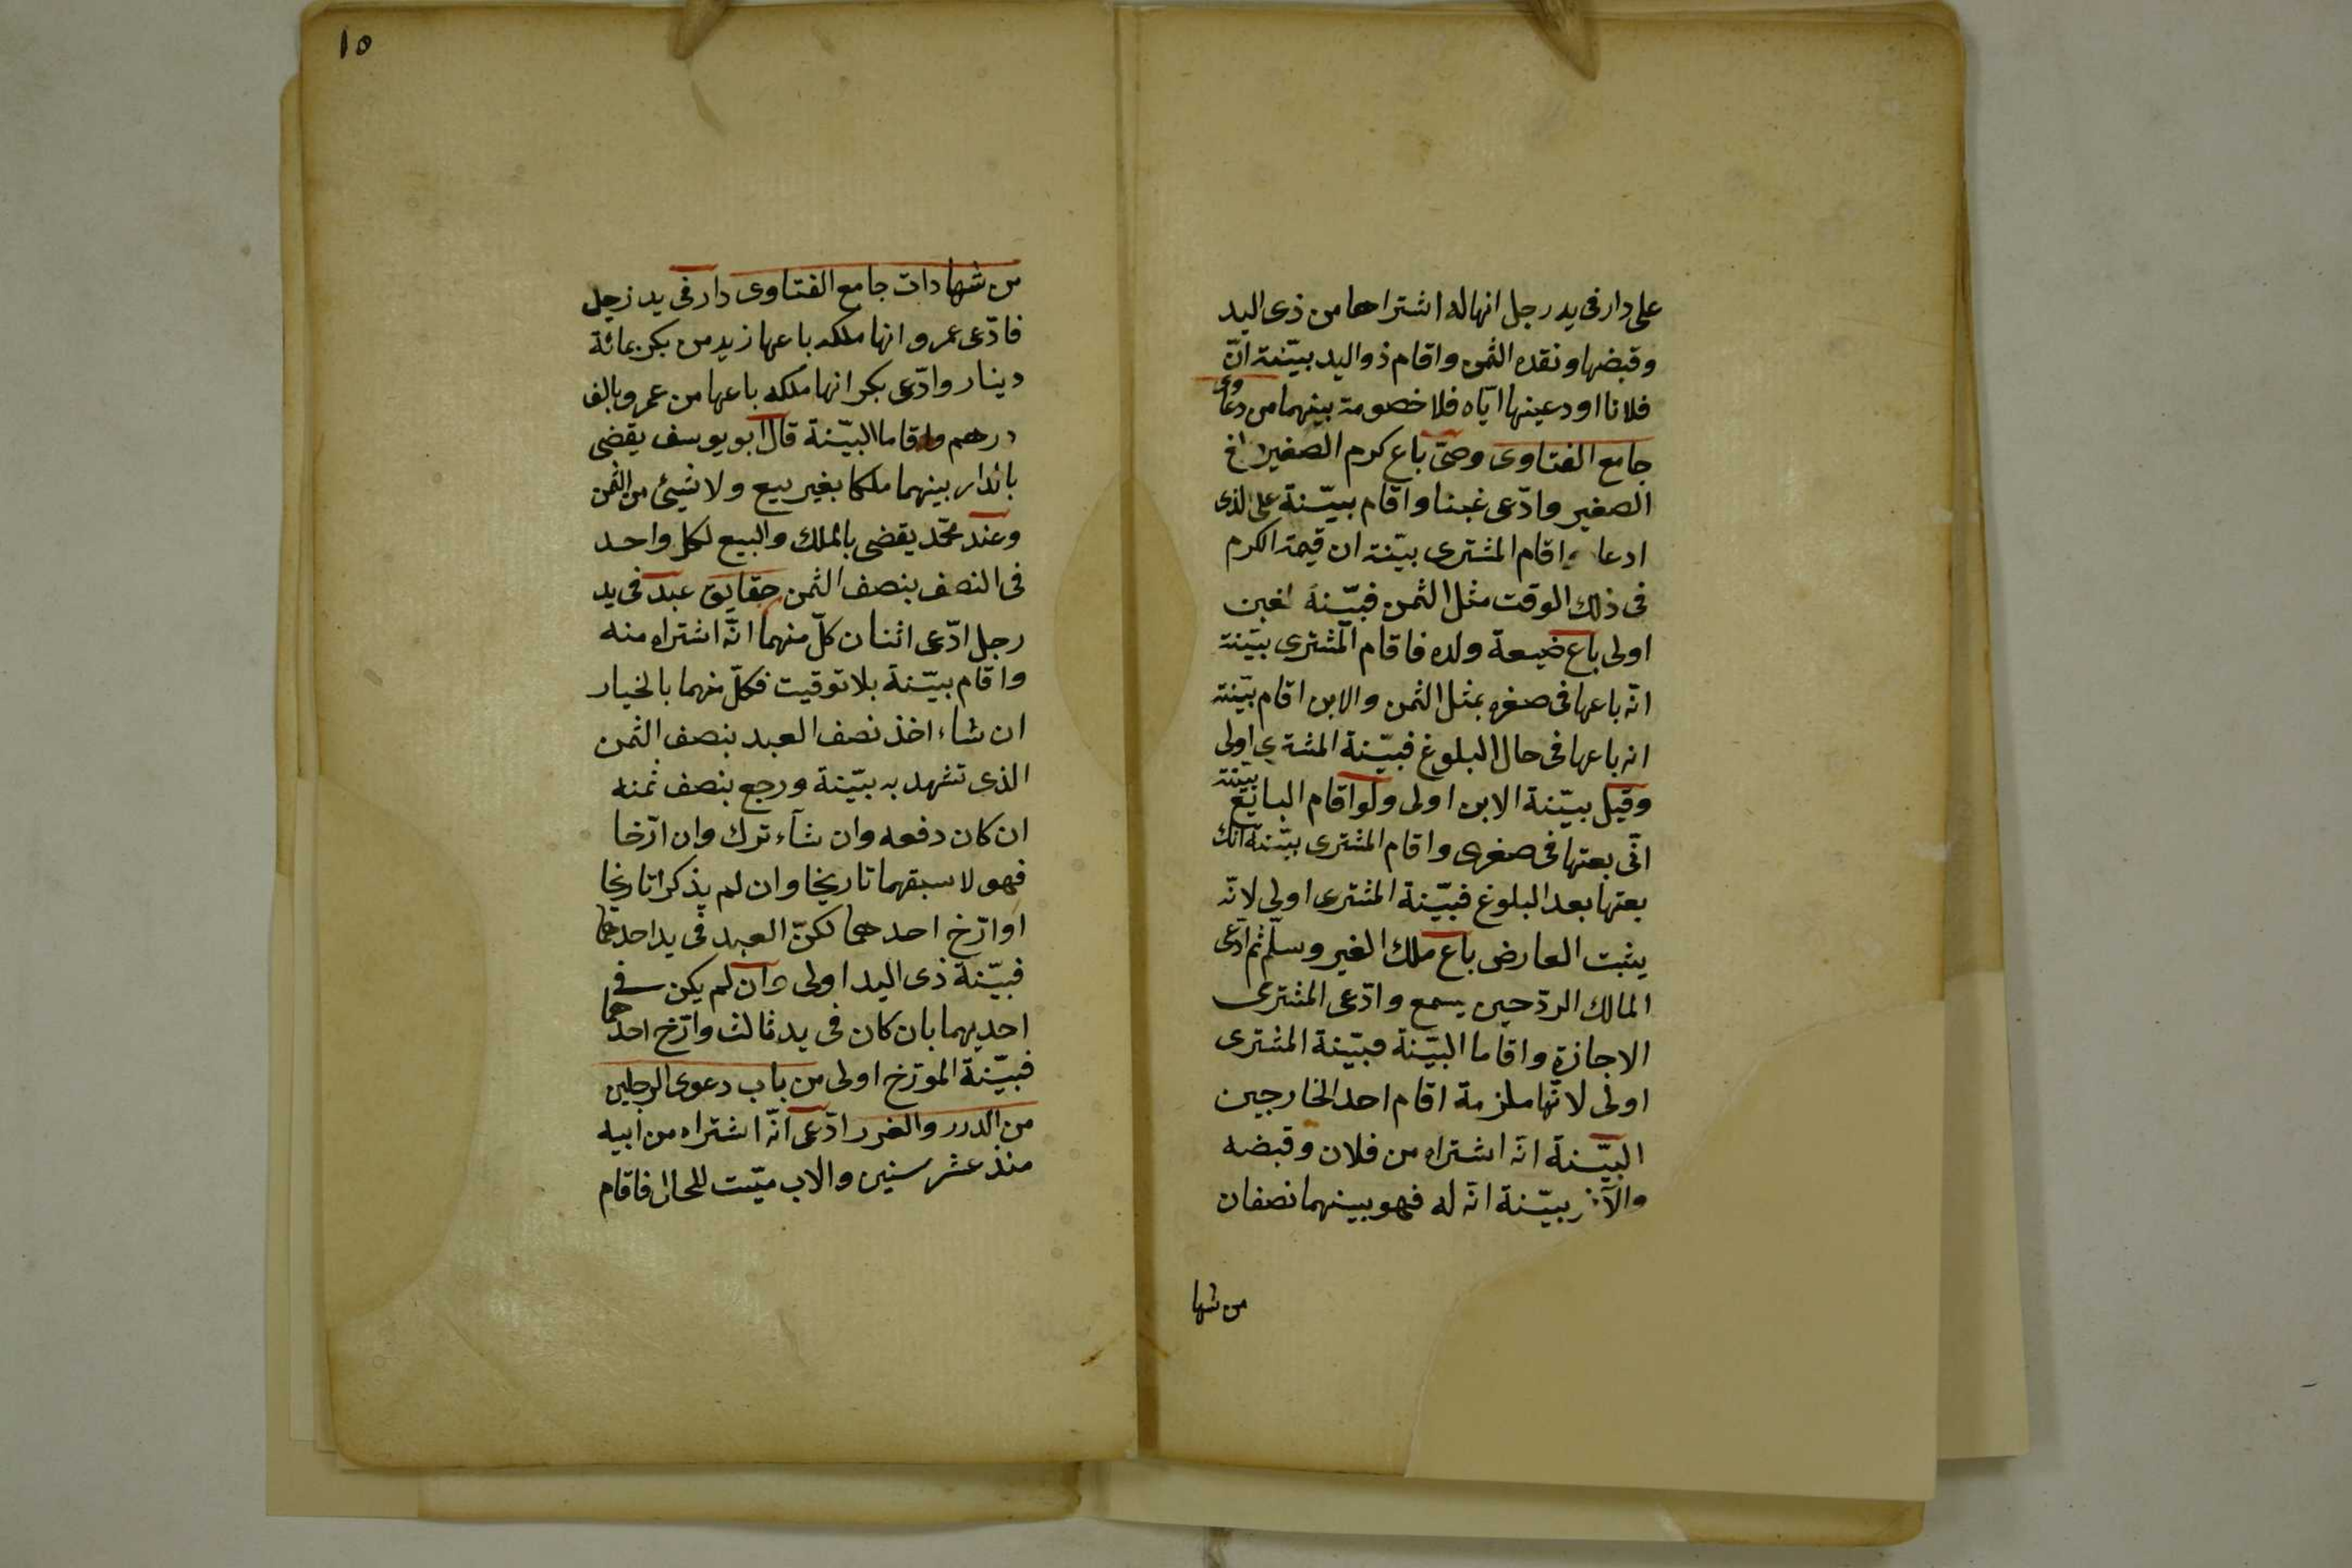 على دار فى يد رجل انها له اشتراها من ذى اليد
وقبضها ونقده الثمن واقام ذو اليد بيّنة انّ
فلانا اودعينها ايّاه فلا خصومة بينهما من دعاوى
جامع الفتاوى وصىّ باع كرم الصغير
الصغير وادّعى غبنا واقام بيّنة على الذى
ادعا واقام المشترى بيّنة ان قيمة الكرم
فى ذلك الوقت مثل الثمن فبيّنة الغبن
اولى باع ضيعة ولده فاقام المشترى بيّنة
انّه باعها فى صغره بمثل الثمن والابن اقام بيّنة
انه باعها فى حال البلوغ فبيّنة المشترى اولى
وقيل بيّنة الابن اولى ولو اقام البايع بيّنة
انّى بعتها فى صغرى واقام المشترى بيّنة انّك
بعتها بعد البلوغ فبيّنة المشترى اولى لانّه
يثبت العارض باع ملك الغير وسلّم ثم ادّعى
المالك الردّ حين يسمع وادّعى المشترى
الاجازة واقاما البيّنة فبيّنة المشترى
اولى لانّها ملزمة اقام احد الخارجين
البيّنة انّه اشتراه من فلان وقبضه
والآخر بيّنة انّه له فهو بينهما نصفان
من شها
١٥
من شهادات جامع الفتاوى دار فى يد رجل
فادّعى عمرو انها ملكه باعها زيد من بكر بمائة
دينار وادّعى بكر انها ملكه باعها من عمرو بالف
درهم واقاما البيّنة قال ابو يوسف يقضى
بالدار بينهما ملكا بغير بيع ولا شيئ من الثمن
وعند محمّد يقضى بالملك والبيع لكل واحد
فى النصف بنصف الثمن حقايق عبد فى يد
رجل ادّعى اثنان كلّ منهما انّه اشتراه منه
واقام بيّنة بلا توقيت فكلّ منهما بالخيار
ان شاء اخذ نصف العبد بنصف الثمن
الذى تشهد به بيّنة ورجع بنصف ثمنه
ان كان دفعه وان شآء ترك وان ارّخا
فهو لاسبقهما تاريخا وان لم يذكرا تاريخا
او ارّخ احدهما لكنّ العبد فى يد احدهما
فبيّنة ذى اليد اولى وان لم يكن فى
احديهما بان كان فى يد ثالث وارّخ احدهما
فبيّنة المورّخ اولى من باب دعوى الرجلين
من الدرر والغرر ادّعى انّه اشتراه من ابيه
منذ عشر سنين والاب ميّت للحال فاقام